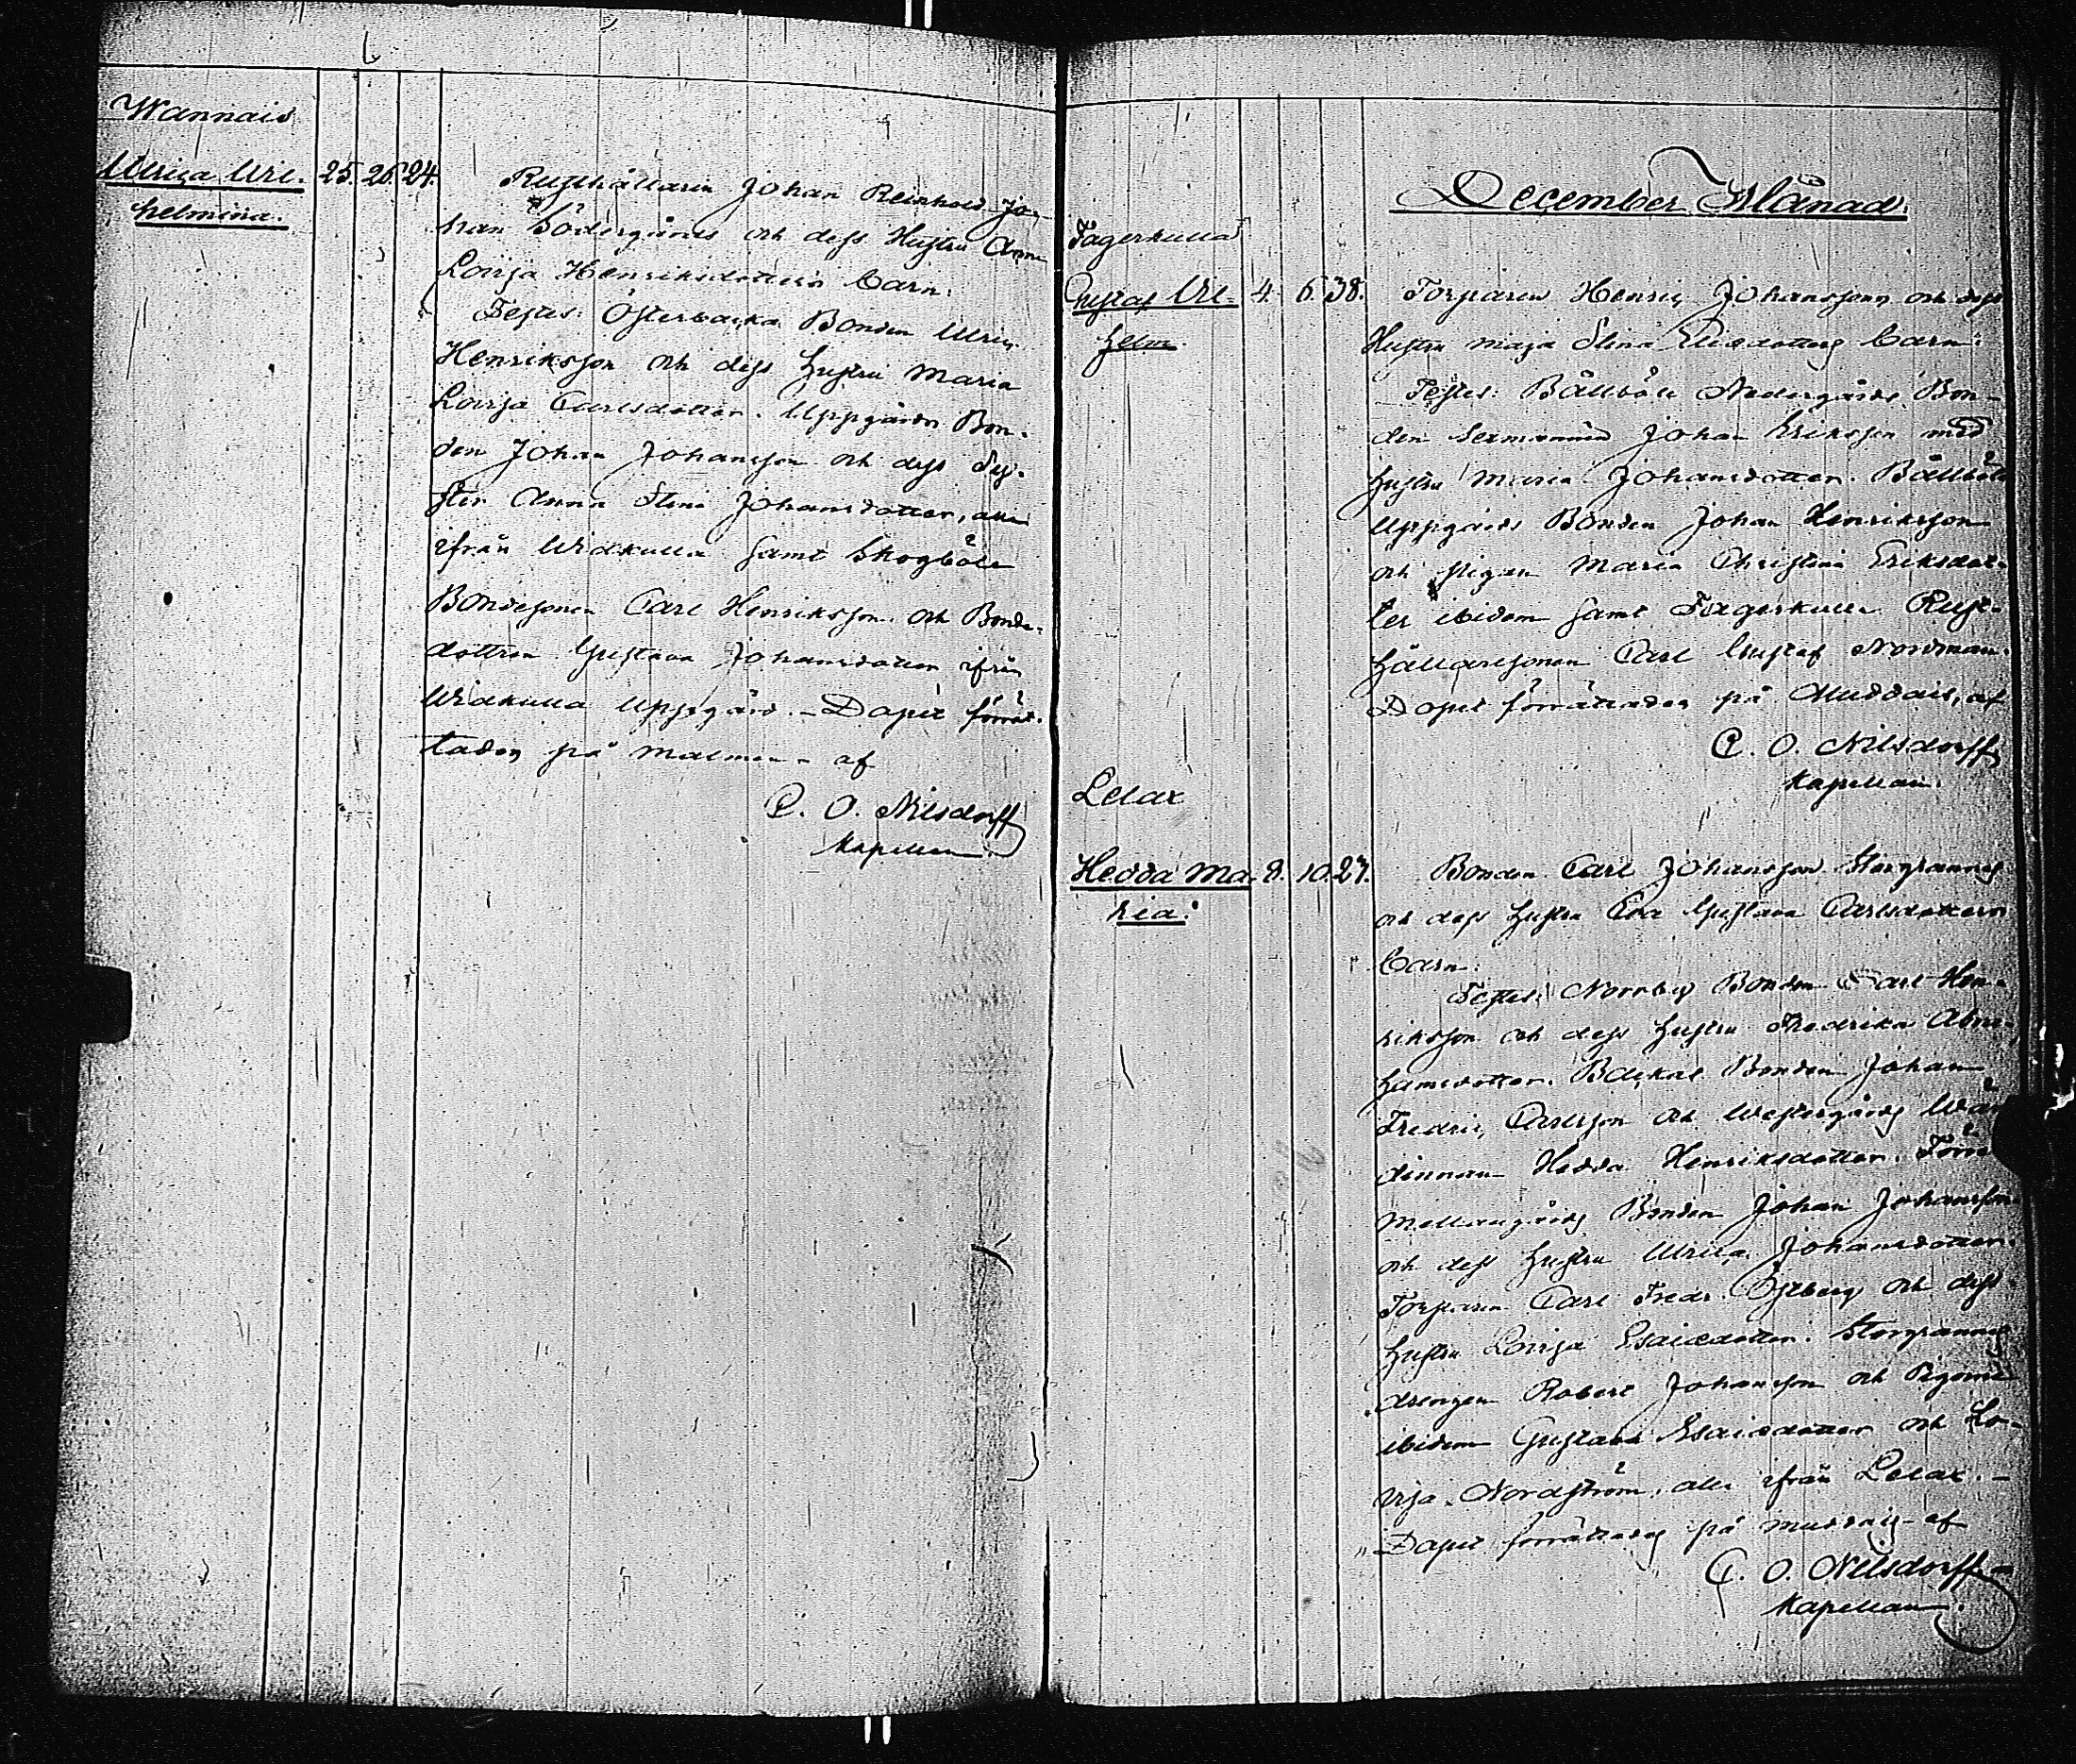 Wannais
Ulrica Wil- 25. 26. 24.
helmina.
Rusthållaren Johan Reinhold Jo-
han Södergårds och dess Hustru Anna
Lovisa Henriksdotters barn:
Testes: Österbacka Bonden Ulric
Henriksson och dess hustru Maria
Lovisa Carlsdotter. Uppgårds Bon-
den Johan Johansson och dess Sys-
ster Anna Stina Johansdotter, alla
ifrån Widkulla samt Skogböle
Bondesonen Carl Henriksson och Bonde-
dottren Gustava Johansdotter ifrån
Widkulla Uppgård. – Dopet förrät-
tades på Malmen – af
C. O. Nilsdorff
Kapellan.
December Månad.
Fagerkulla
Gustaf Wil- 4. 6. 38.
helm.
Torparen Henric Johanssons och dess
Hustru Maja Stina Elisdotters barn:
Testes: Bällböle Nedergårds Bon-
den Sexmannen Johan Eriksson med
hustru Maria Johansdotter. Bällböle
Uppgårds Bonden Johan Henriksson
och pigan Maria Christina Eriksdot-
ter ibidem samt Fagerkulla Rust-
hållaresonen Carl Gustaf Nordman.
Dopet förrättades på Muddais, af
C. O. Nilsdorff
Kapellan.
Lelax
Hedda Ma- 8. 10. 27.
ria.
Bonden Carl Johansson Storgrannas
och dess hustru Eva Gustava Carlsdotters
barn:
Testes: Norrby Bonden Carl Hen-
riksson och dess hustru Fredrika Abra-
hamsdotter. Backas Bonden Johan
Fredric Carlsson och Westergårds Wär-
dinnan Hedda Henriksdotter.
Mellangårds Bonden Johan Johansson
och dess hustru Ulrica Johansdotter.
Torparen Carl Fredr. Östberg och dess
hustru Lovisa Esaiædotter. Storgrannas
drengen Robert Johansson och Pigorna
ibidem Gustava Esaiædotter och Lo-
visa Nordström, alla ifrån Lelax. –
Dopet förrättades på Muddais – af
C. O. Nilsdorff. –
Kapellan.